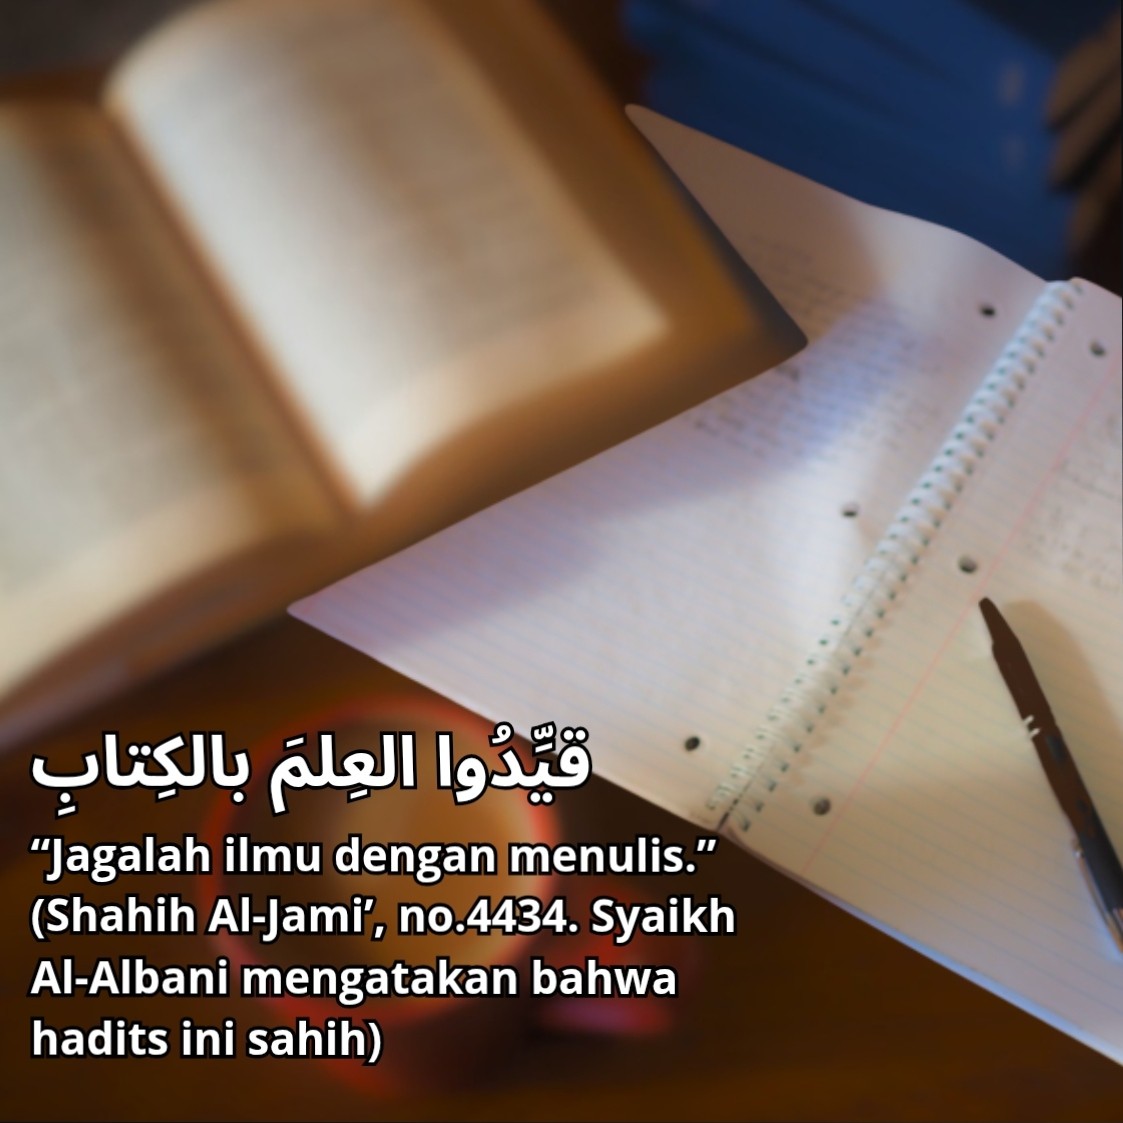 قيِّدُوا العِلمَ بالكِتابِ
“Jagalah ilmu dengan menulis.”
(Shahih Al-Jami’, no.4434. Syaikh
Al-Albani mengatakan bahwa
hadits ini sahih)